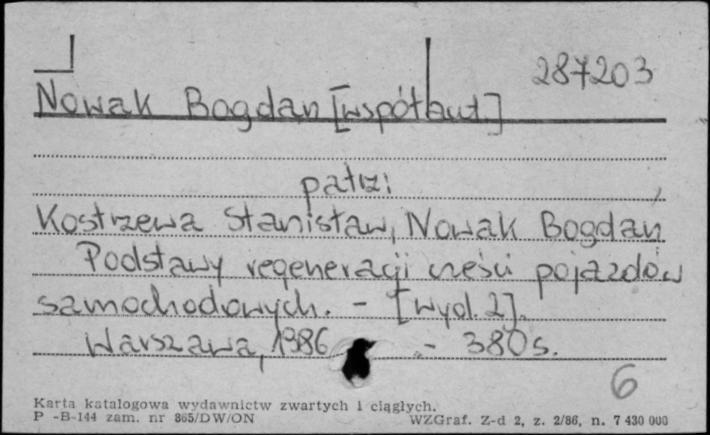 287203
Nowak Bogdan [współaut.]
patrz:
Kostrzewa Stanisław, Nowak Bogdan
Podstawy regeneracji części pojazdów
samochodowych. - [wyd. 2].
Warszawa, 1986 - 380 s.
6
Karta katalogowa wydawnictw zwartych i ciągłych.
P -B-144 zam. nr 865/DW/ON WZGraf. Z-d 2, z. 2/86, n. 7 430 000